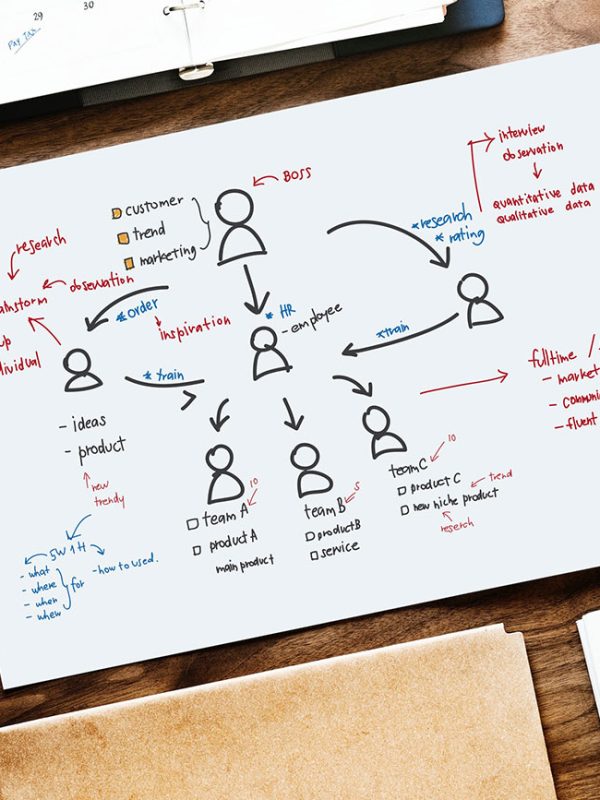 29
30
Pay Tax
BOSS
customer
trend
marketing
interview
observation
quantitative data
qualitative data
*research
* rating
research
observation
ainstorm
up
dividual
*order
inspiration
* HR
- employee
*train
* train
- ideas
- product
new
trendy
fulltime /
- market
- commun
- fluent
10
team A
product A
main product
5
team B
product B
service
10
team C
product C
trend
new niche product
research
5W 1H
- what
- where
- when
for
- how to used.